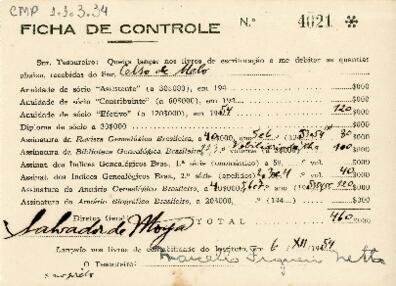 CMP 1.3.3.34
FICHA DE CONTROLE N.º 4021 *
Snr. Tesoureiro: Queira lançar nos livros de escrituração a me debitar as quantias
abaixo, recebidas do Snr. Celso de Melo
Anuidade de sócio "Assistente" (a 308000), em 194 $000
Anuidade de sócio "Contribuinte" (a 608000), em 194 $000
Anuidade de sócio "Efetivo" (a 1208000), em 1954 120 $000
Diploma de sócio a 308000 $000
Assinatura de Revista Genealógica Brasileira, 80 $000
Assinatura de Biblioteca Genealógica Brasileira, 100 $000
Assinat. dos Indices Genealógicos Bras., 1.ª série (onomástico) a 58, n.º vol. $000
Assinat. dos Indices Genealógicos Bras., 2.ª série (apelidos) n.º vol. 40 $000
Assinatura do Anuário Genealógico Brasileiro, a 120 $000
Assinatura do Anuário Biográfico Brasileiro, a 208000, (194 ) $000
Diretor Geral TOTAL 460 $000
Salvador de Moya
Lançado nos livros de contabilidade do Instituto, em 6 XII 1954
O Tesoureiro: Netto